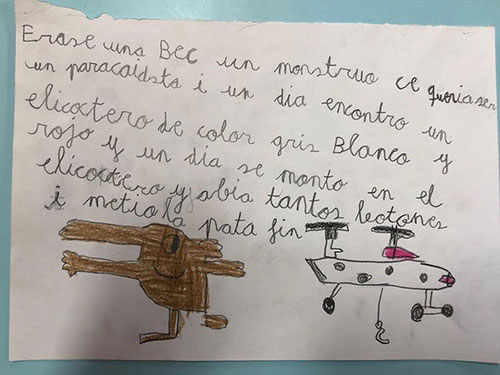 Erase una Bec un monstruo ce queria ser
un paracaidsta i un dia encontro un
elicoctero de color gris Blanco y
rojo y un dia se monto en el
elicoctero y abia tantos botones
i metio la pata fin